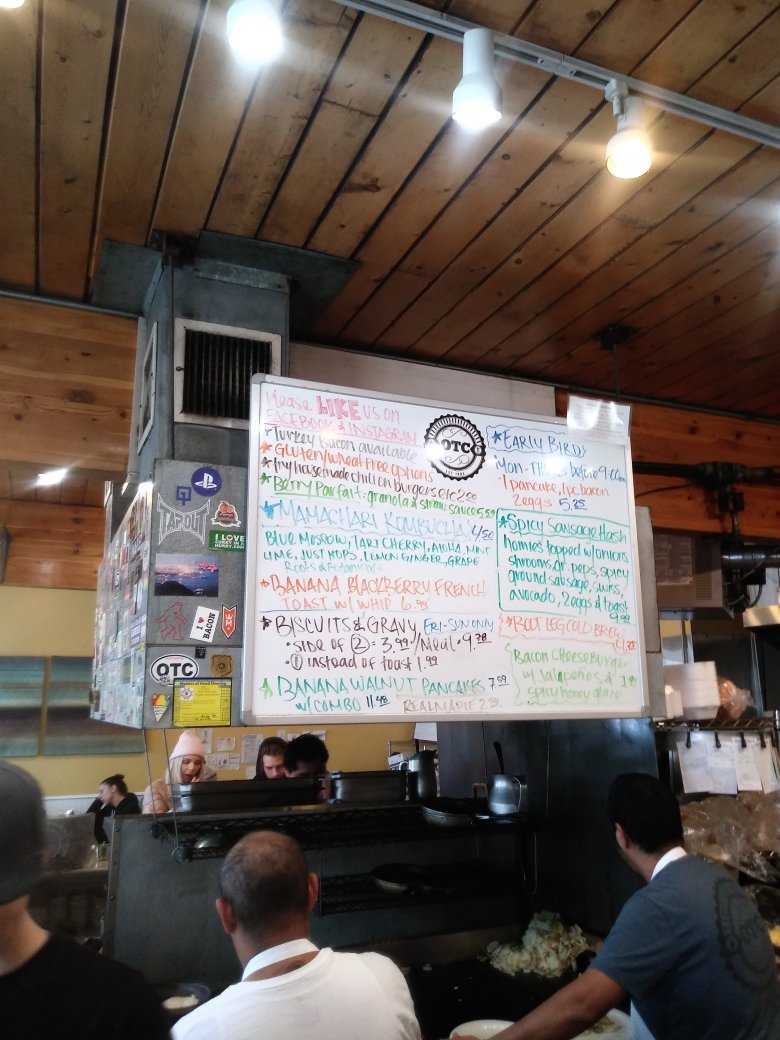 Please LIKE us on
FACEBOOK & INSTAGRAM
*Turkey Bacon available
*Gluten/wheat free options
*try housemade chili on burgers etc 2.00
*Berry Parfait: granola & straw sauce 5.50
*MAMACHARI KOMBUCHA:
BLUE MOSCOW, TART CHERRY, ALOHA, MINT
LIME, JUST HOPS, LEMON GINGER, GRAPE
Roots & Botanicals
*BANANA BLACKBERRY FRENCH
TOAST W/ WHIP 6.99
*BISCUITS & GRAVY FRI-SUN ONLY
• SIDE OF ② = 3.99/MEAL
• ① instead of toast 1.99
BANANA WALNUT PANCAKES 7.99
w/ COMBO
REAL MAPLE
OTC
*EARLY BIRDS
before
1 pancake, 1 pc bacon
2 eggs 5.25
*Spicy Sausage Hash
homies topped w/ onions
shrooms, gr. peps, spicy
ground sausage, swiss,
avocado, 2 eggs & toast
9.99
*BOOTLEG COLD BREW
Bacon Cheese
w/ Jalapeños &
spicy honey glaze
TAPOUT
I LOVE
I ♥
BACON
OTC
OTC